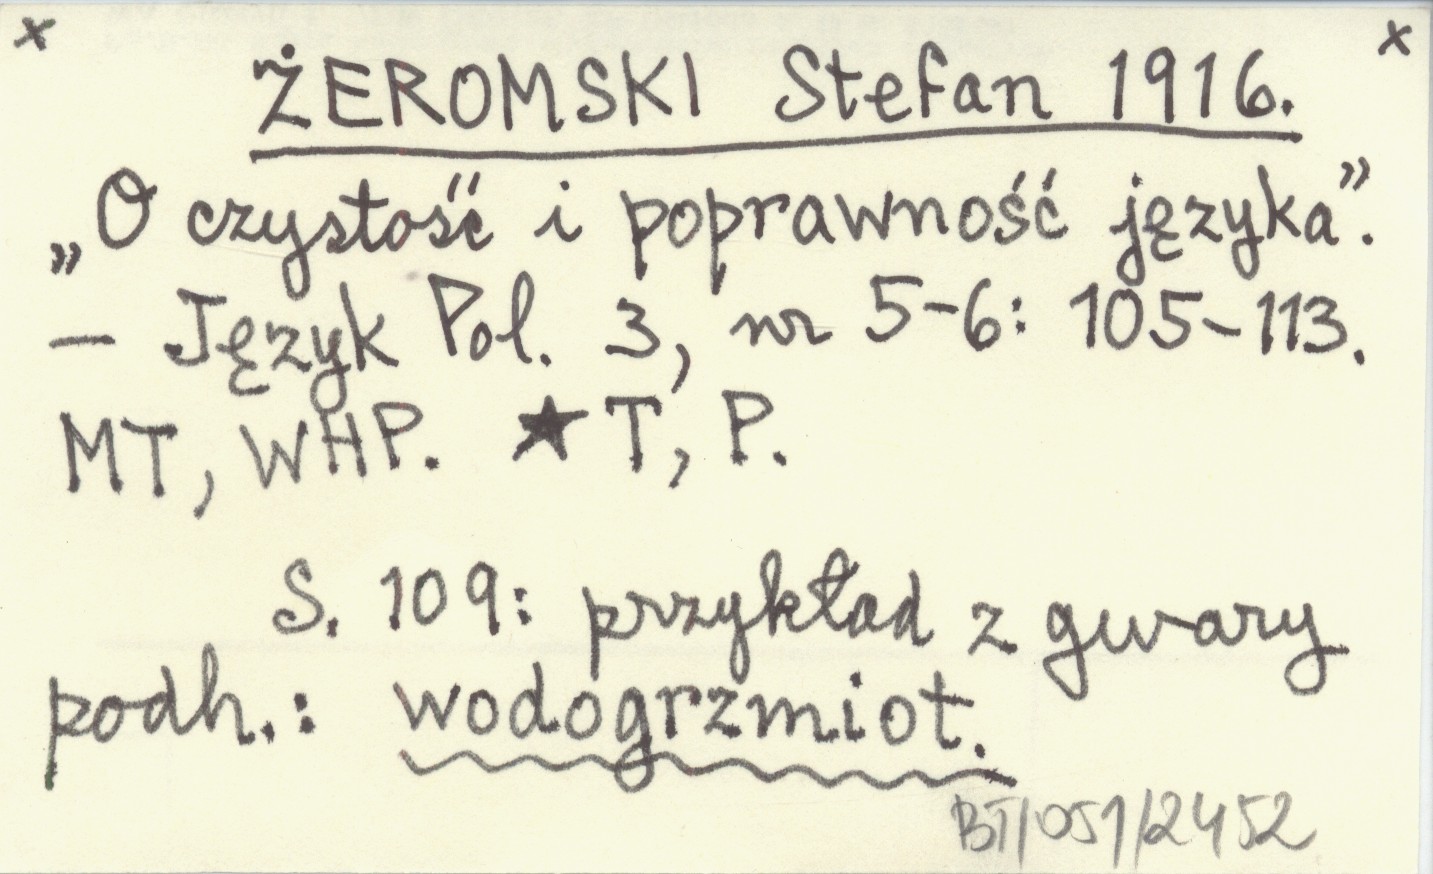 x x
ŻEROMSKI Stefan 1916.
„O czystość i poprawność języka”.
— Język Pol. 3, nr 5-6: 105-113.
MT, WHP. ★ T, P.
S. 109: przykład z gwary
podh.: wodogrzmiot.
BT/051/2452